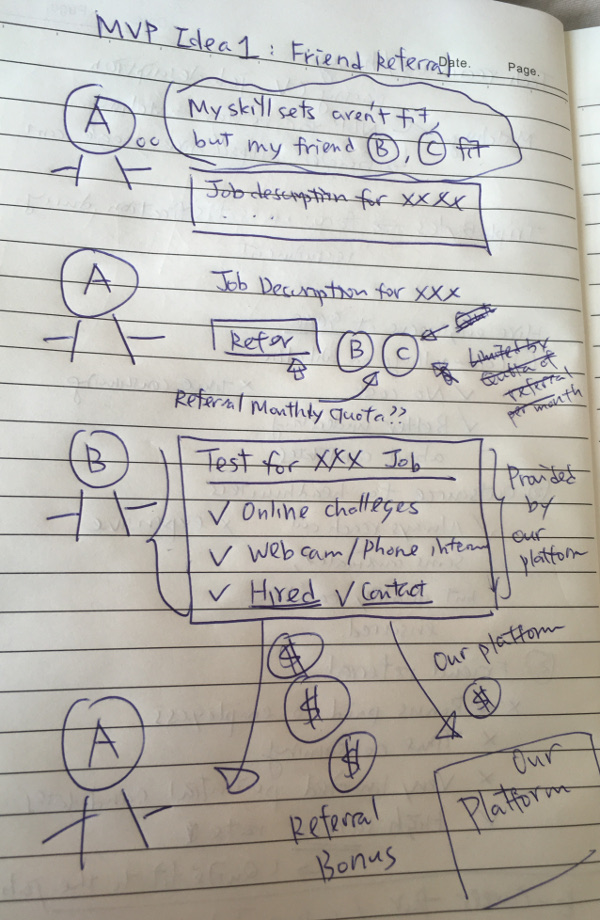 MVP Idea 1 : Friend Referral
Date.
Page.
A
My skill sets aren't fit,
but my friend B, C fit
Job description for XXXX
. . . .
A
Job Description for XXX
Refer
B C
Limited by
Quota of
referral
per month
Referral Monthly Quota??
B
Test for XXX Job
✓ Online challeges
✓ Web cam/phone interv
✓ Hired ✓ Contact
Provided
by
our
platform
$
$
$
our platform
$
A
Referral
Bonus
Our
Platform